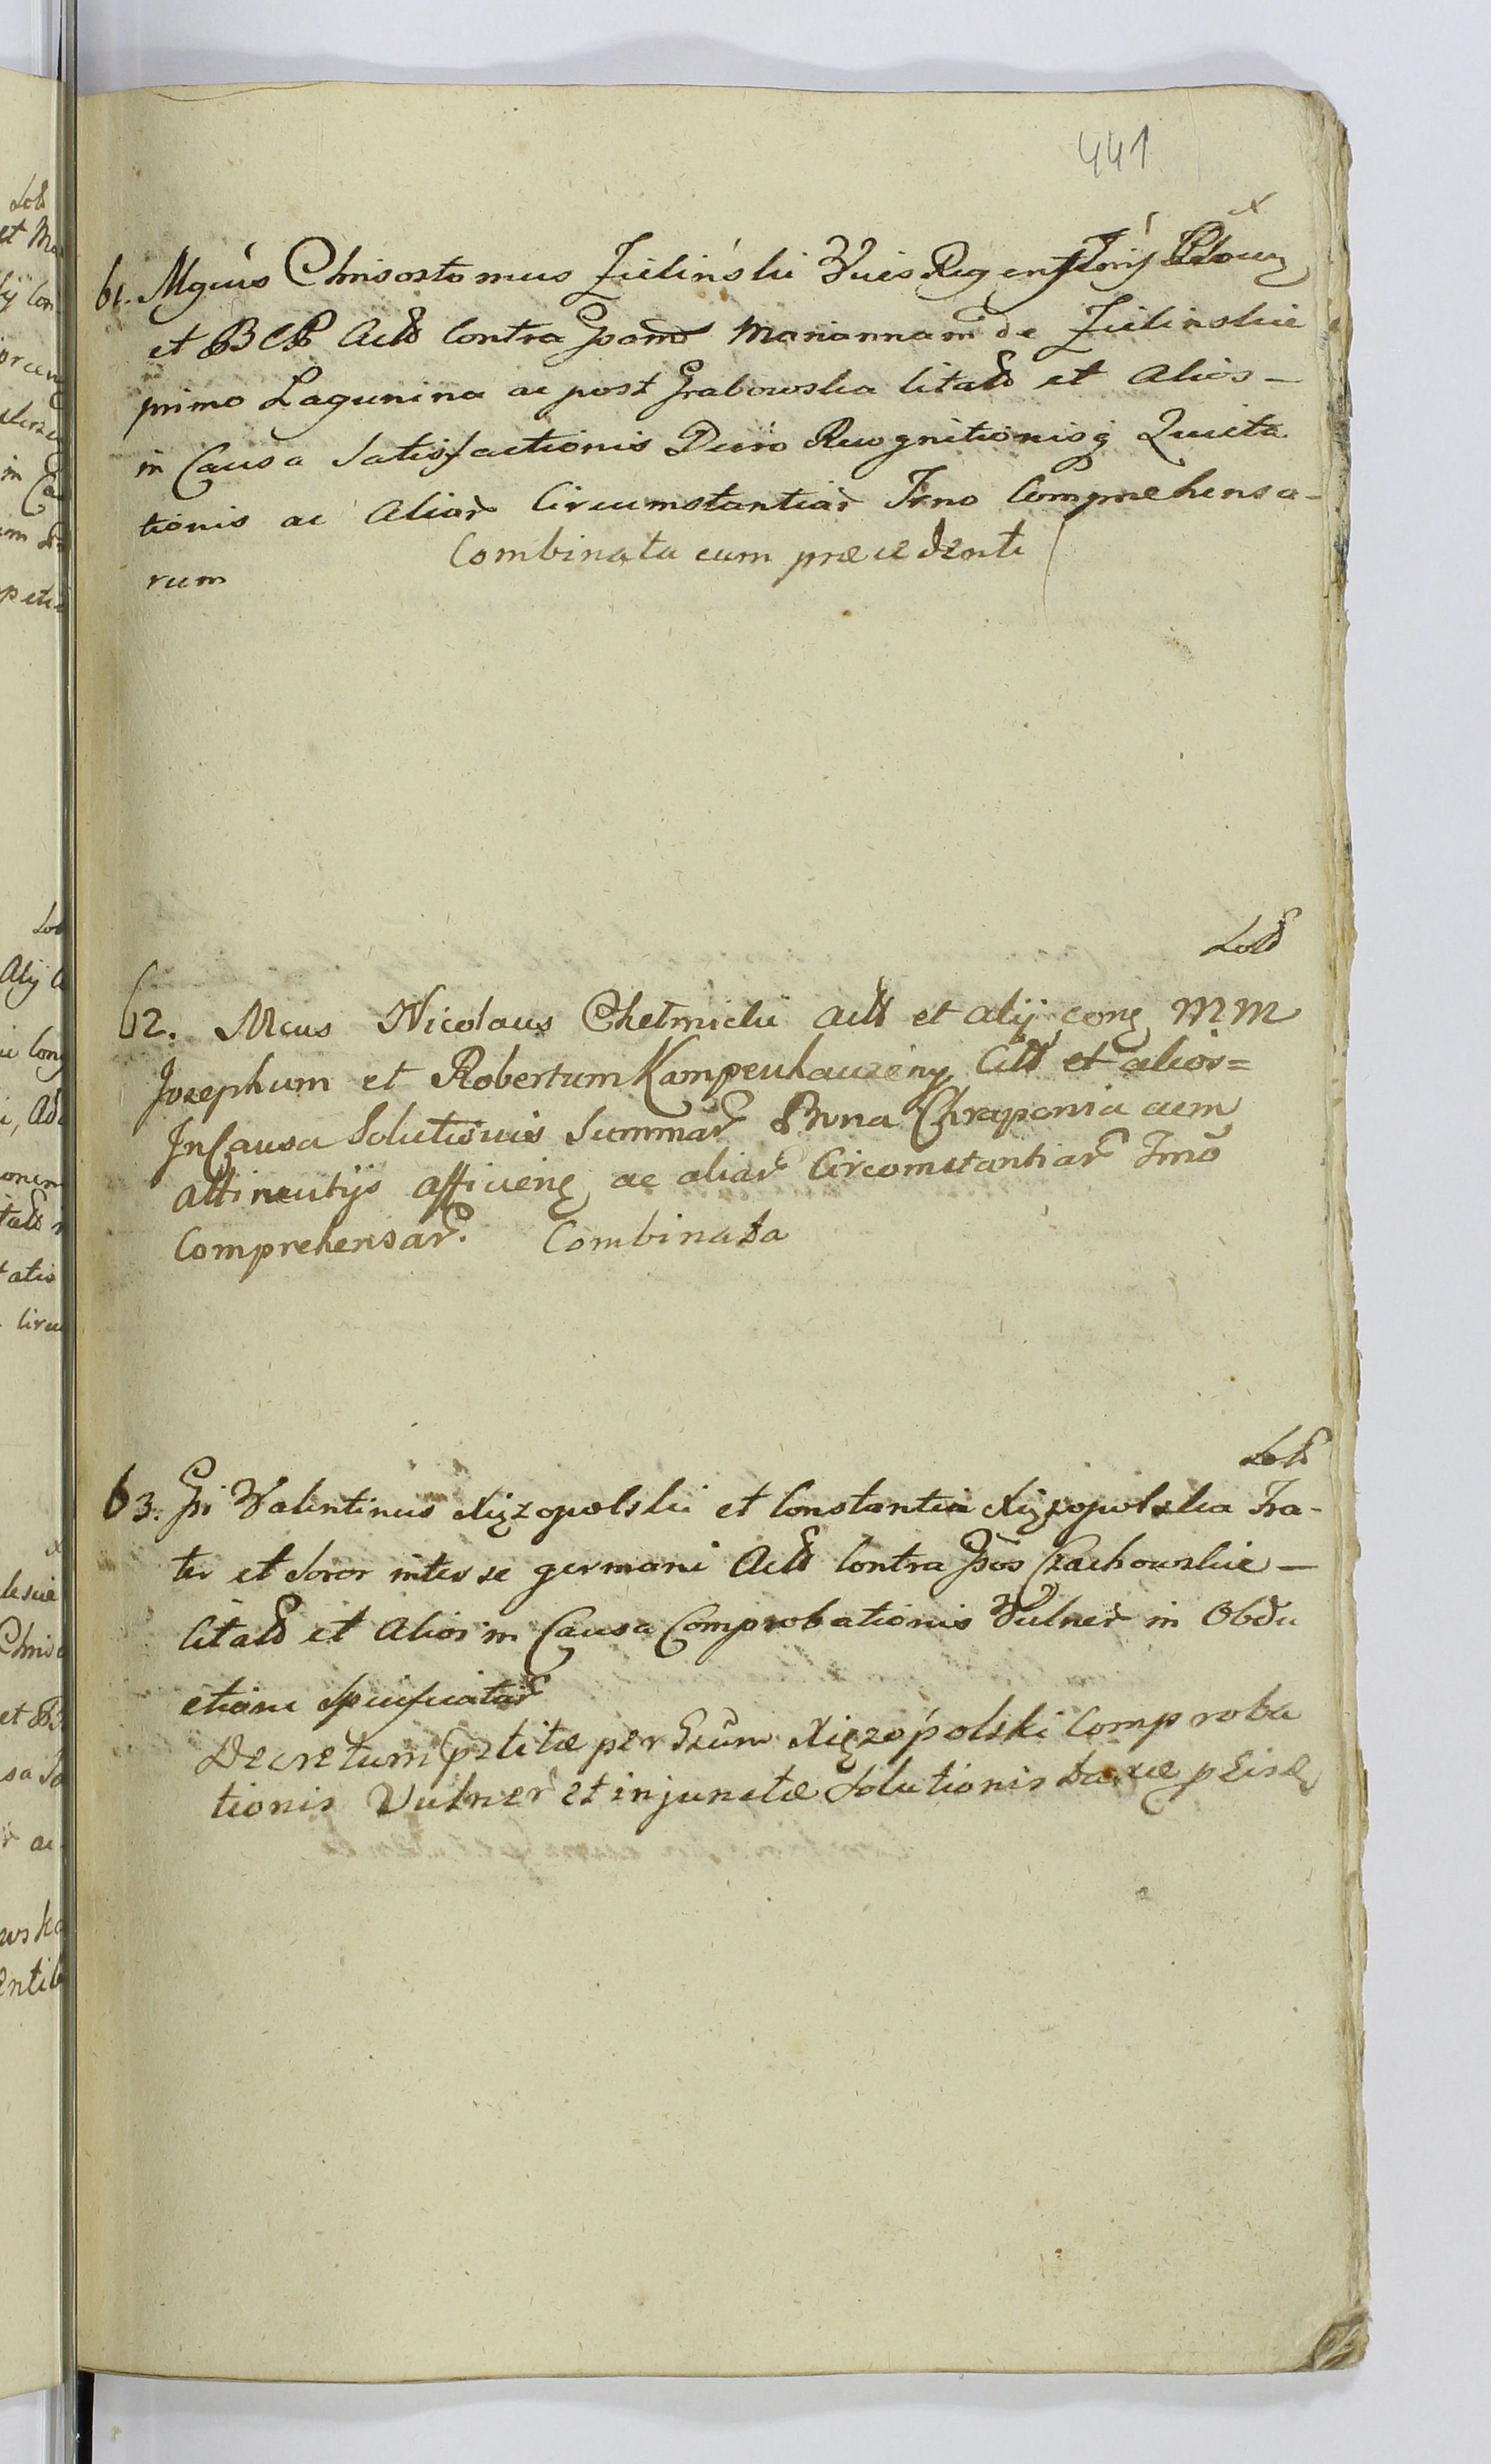 441
x
61. Mgcus Chrisostomus Zielinski Vices Regens Trij Płocen
et BCP Actd Contra Gsam Mariannam de Zielinskie
primo Lagunina ac post Grabowska Citatd et Alios –
in Causa Satisfactionis Decro Recognitionisq Quieta
tionis ac Aliar Circumstantiar Trno Comprehensa-
rum
Combinata cum praecedenti
Lold
62. Mcus Nicolaus Chełmicki Actd et alij cong MM
Josephum et Robertum Kampenhauzeny Citd et alios =
In Causa Solutionis Summar Bona Chraponia cum
attinentijs afficieng ac aliar Circomstantiar Trno
Comprehensar. Combinata
Lold
63. Gsi Valentinus Xięzopolski et Constantia Xięzopolska Fra-
ter et Soror inter se germani Actd Contra Gsos Czachowskie –
Citatd et Alios in Causa Comprobationis Vulner in Obdu
ctione Specificatar
Decretum petitae per Gsum Xięzopolski Comproba
tionis Vulner et injunctae Solutionis taxae